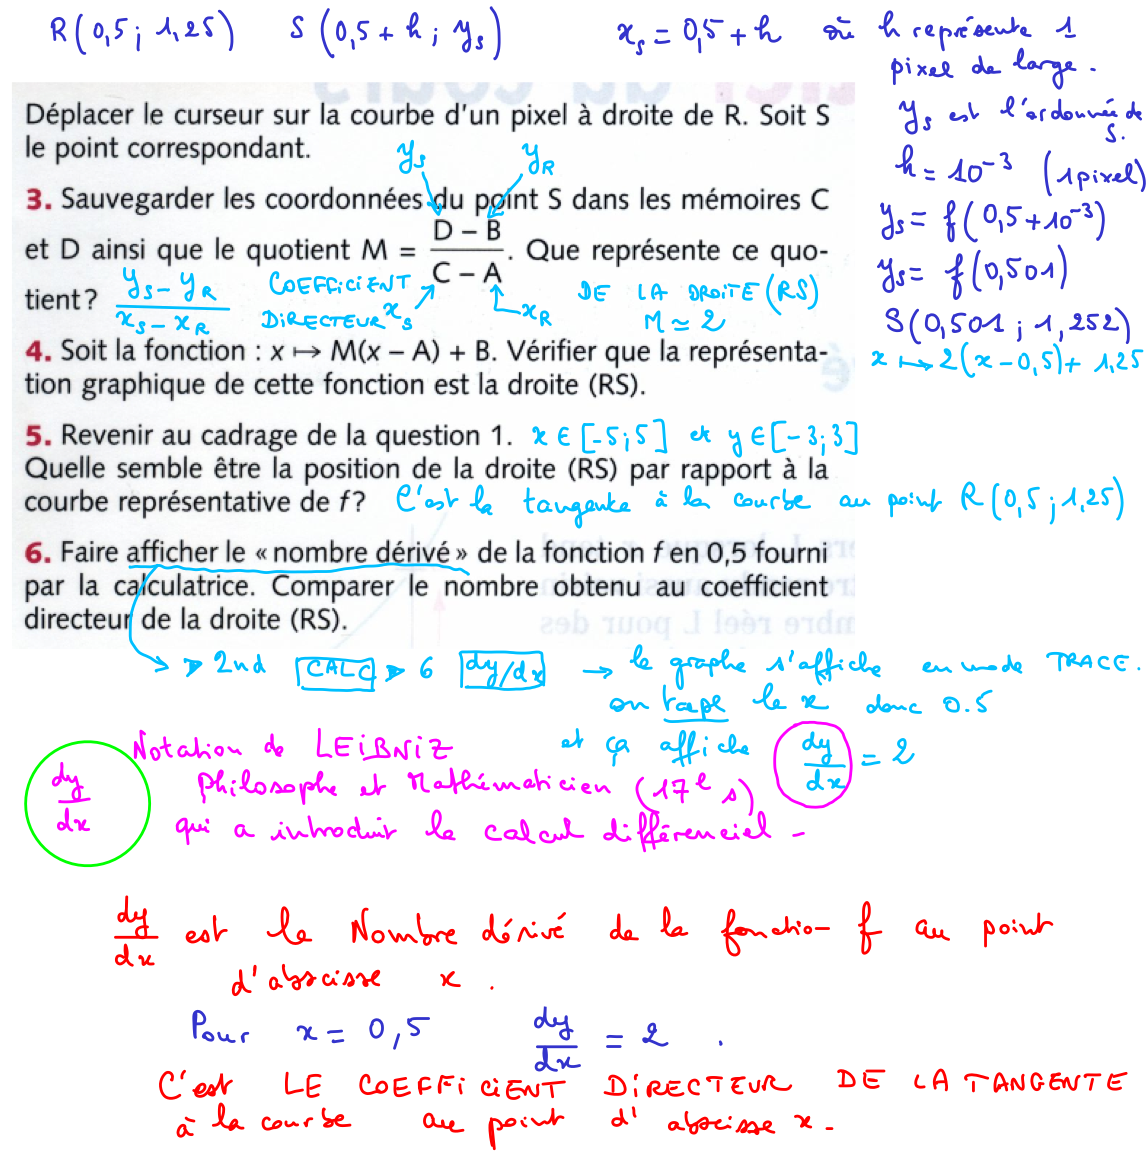 R(0,5 ; 1,25) S(0,5 + h ; yₛ) xₛ = 0,5 + h où h représente 1
pixel de large.
yₛ est l'ordonnée de
S.
h = 10⁻³ (1 pixel)
yₛ = f(0,5 + 10⁻³)
yₛ = f(0,501)
S(0,501 ; 1,252)
x ↦ 2(x - 0,5) + 1,25
Déplacer le curseur sur la courbe d'un pixel à droite de R. Soit S
le point correspondant.
yₛ y_R
3. Sauvegarder les coordonnées du point S dans les mémoires C
et D ainsi que le quotient M = (D – B)/(C – A). Que représente ce quo-
tient ? (yₛ - y_R)/(xₛ - x_R) COEFFICIENT DIRECTEUR xₛ x_R DE LA DROITE (RS)
M ≃ 2
4. Soit la fonction : x ↦ M(x – A) + B. Vérifier que la représenta-
tion graphique de cette fonction est la droite (RS).
5. Revenir au cadrage de la question 1. x ∈ [-5 ; 5] et y ∈ [-3 ; 3]
Quelle semble être la position de la droite (RS) par rapport à la
courbe représentative de f ? C'est la tangente à la courbe au point R(0,5 ; 1,25)
6. Faire afficher le « nombre dérivé » de la fonction f en 0,5 fourni
par la calculatrice. Comparer le nombre obtenu au coefficient
directeur de la droite (RS).
2nd CALC 6 dy/dx → le graphe s'affiche en mode TRACE.
on tape le x donc 0.5
et ça affiche dy/dx = 2
dy/dx
Notation de LEIBNIZ
Philosophe et Mathématicien (17e s)
qui a introduit le calcul différenciel -
dy/dx est le Nombre dérivé de la fonction f au point
d'abscisse x .
Pour x = 0,5 dy/dx = 2 .
C'est LE COEFFICIENT DIRECTEUR DE LA TANGENTE
à la courbe au point d'abscisse x -